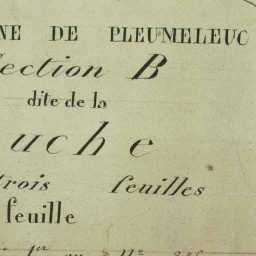 NE DE PLEUMELEUC
ection B
dite de la
uche
trois feuilles
feuille